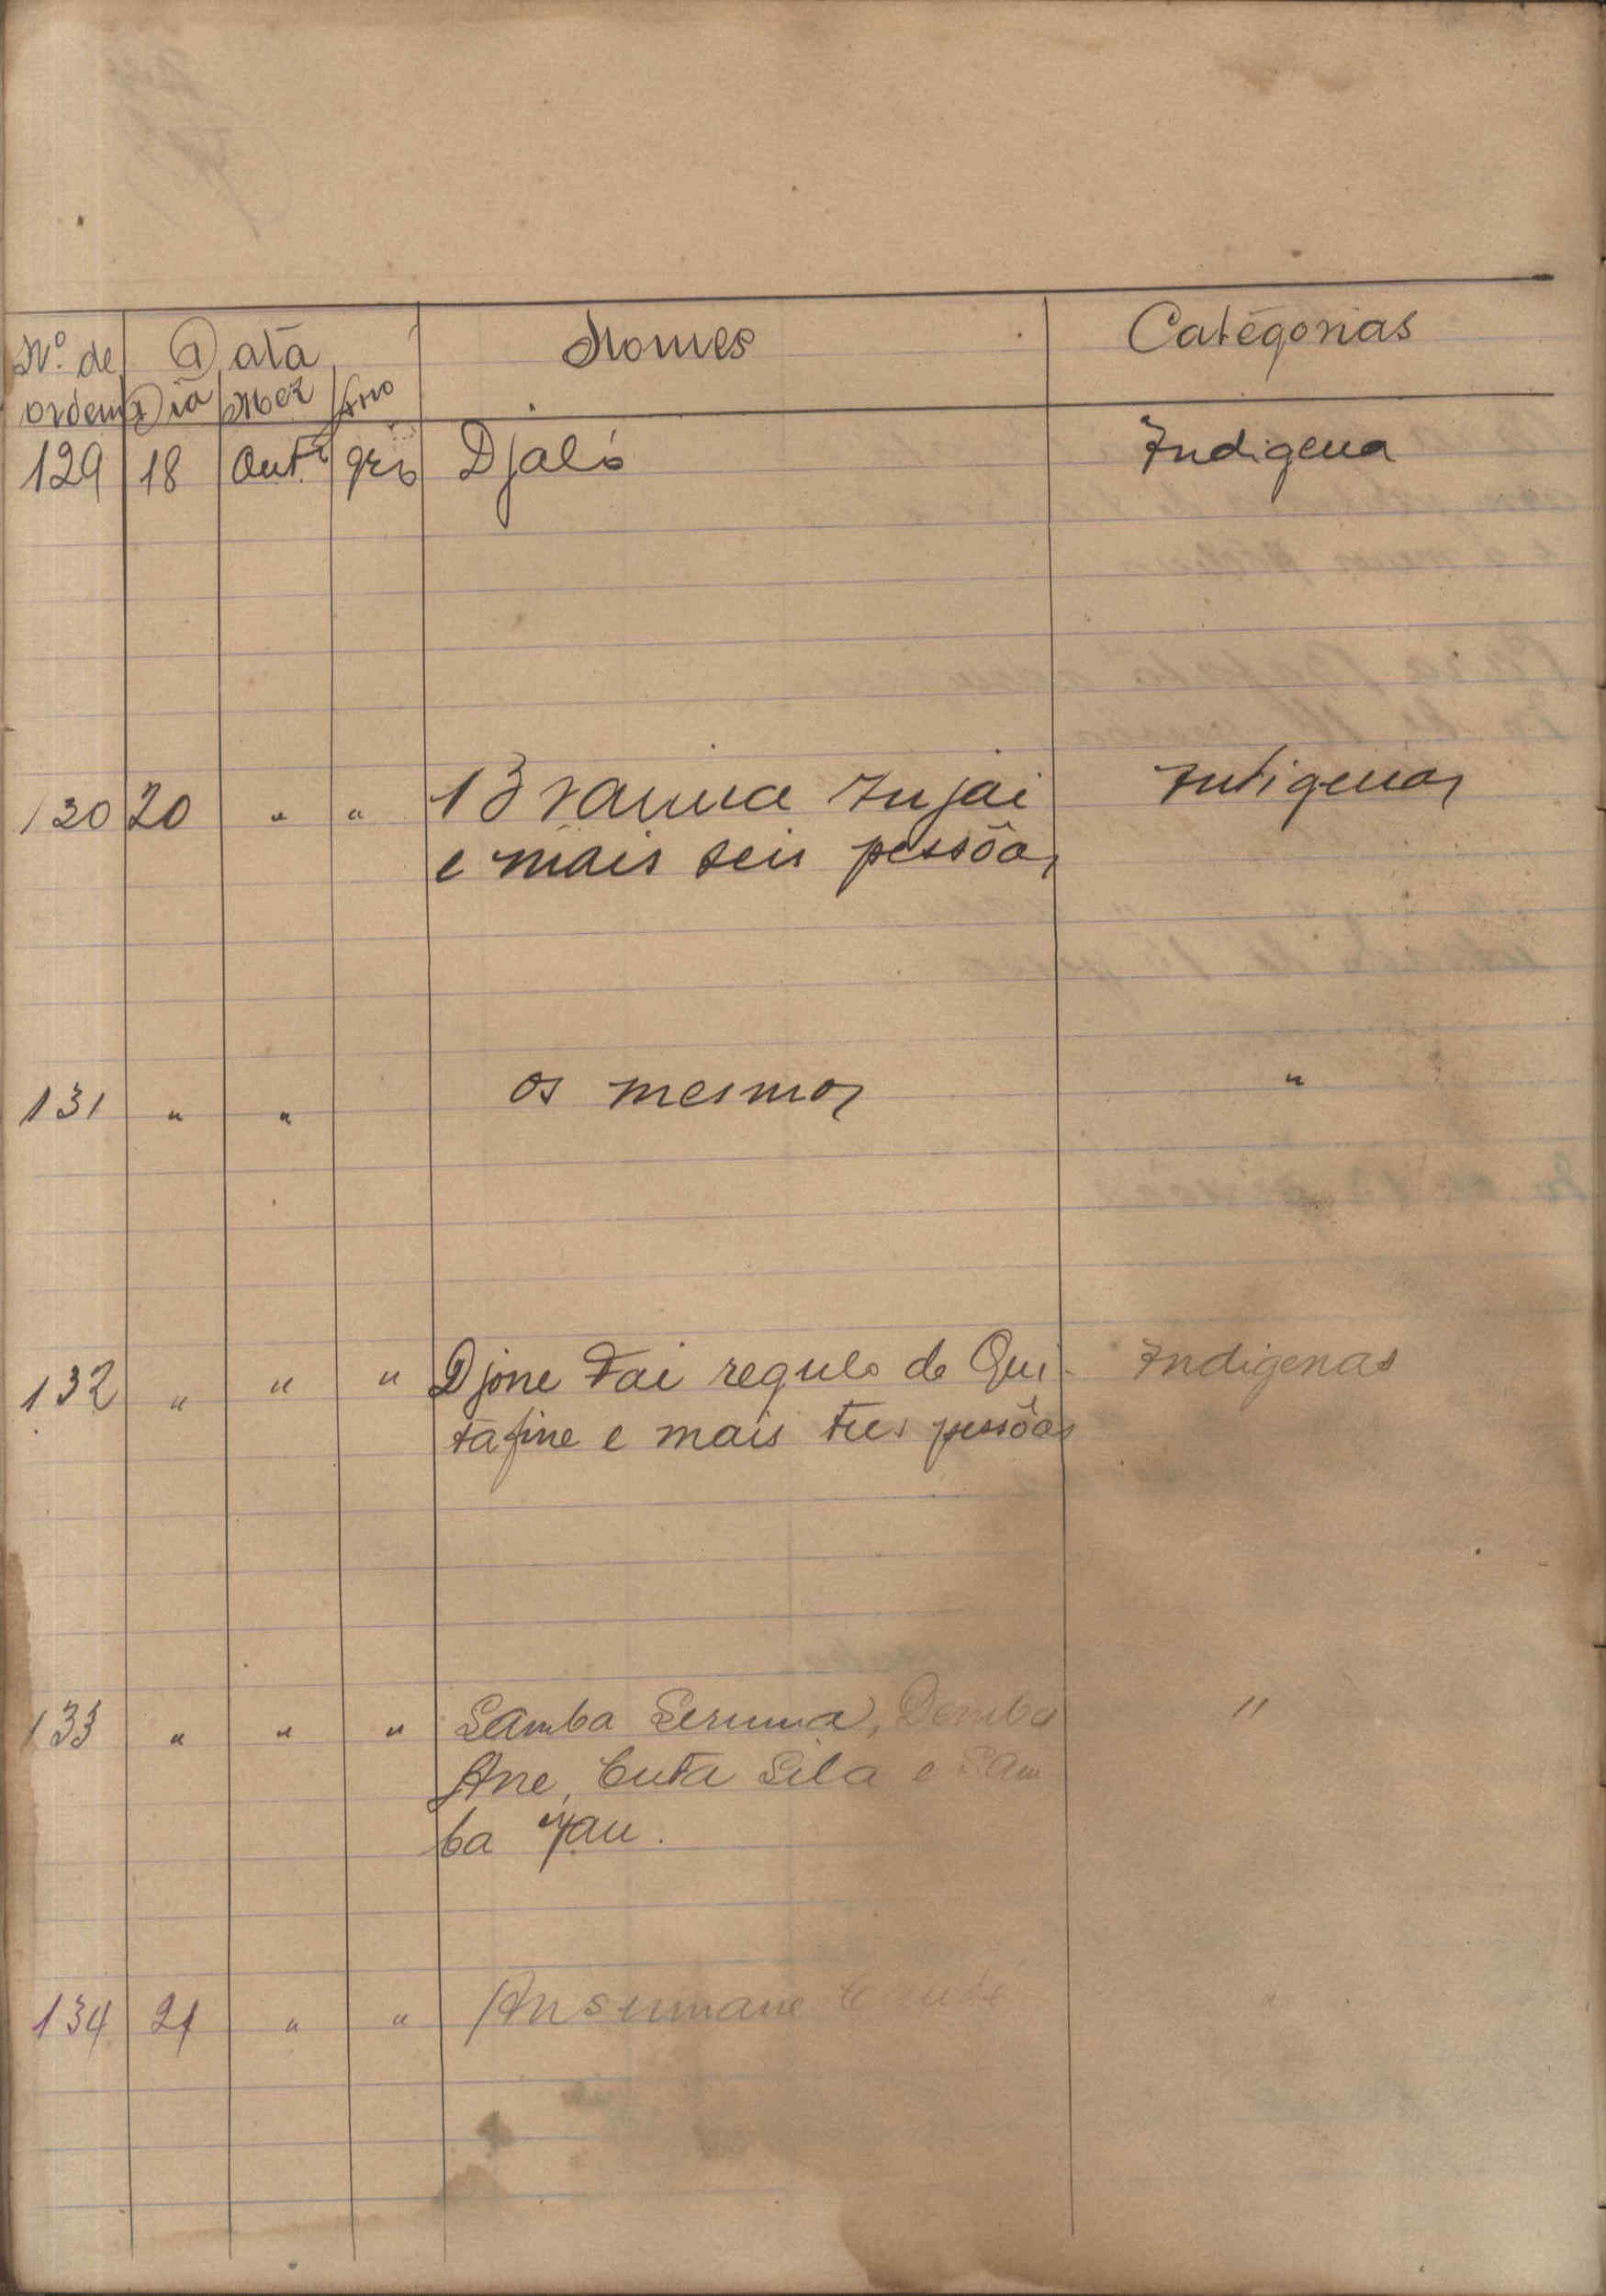 Nº de Data Nomes Catégorias
ordem Dia Mez Ano
129 18 Out.º Djaló Indigena
130 20 " " Braima Injai Indigenas
e mais seis pessôas
131 " " os mesmos "
132 " " " Djone Fai regulo de Qui- Indigenas
tafine e mais tres pessôas
133 " " " Samba Seruma, Demba "
Ane, Cuta Sila e Sam
ba Jau.
134 21 " " Ansumane "